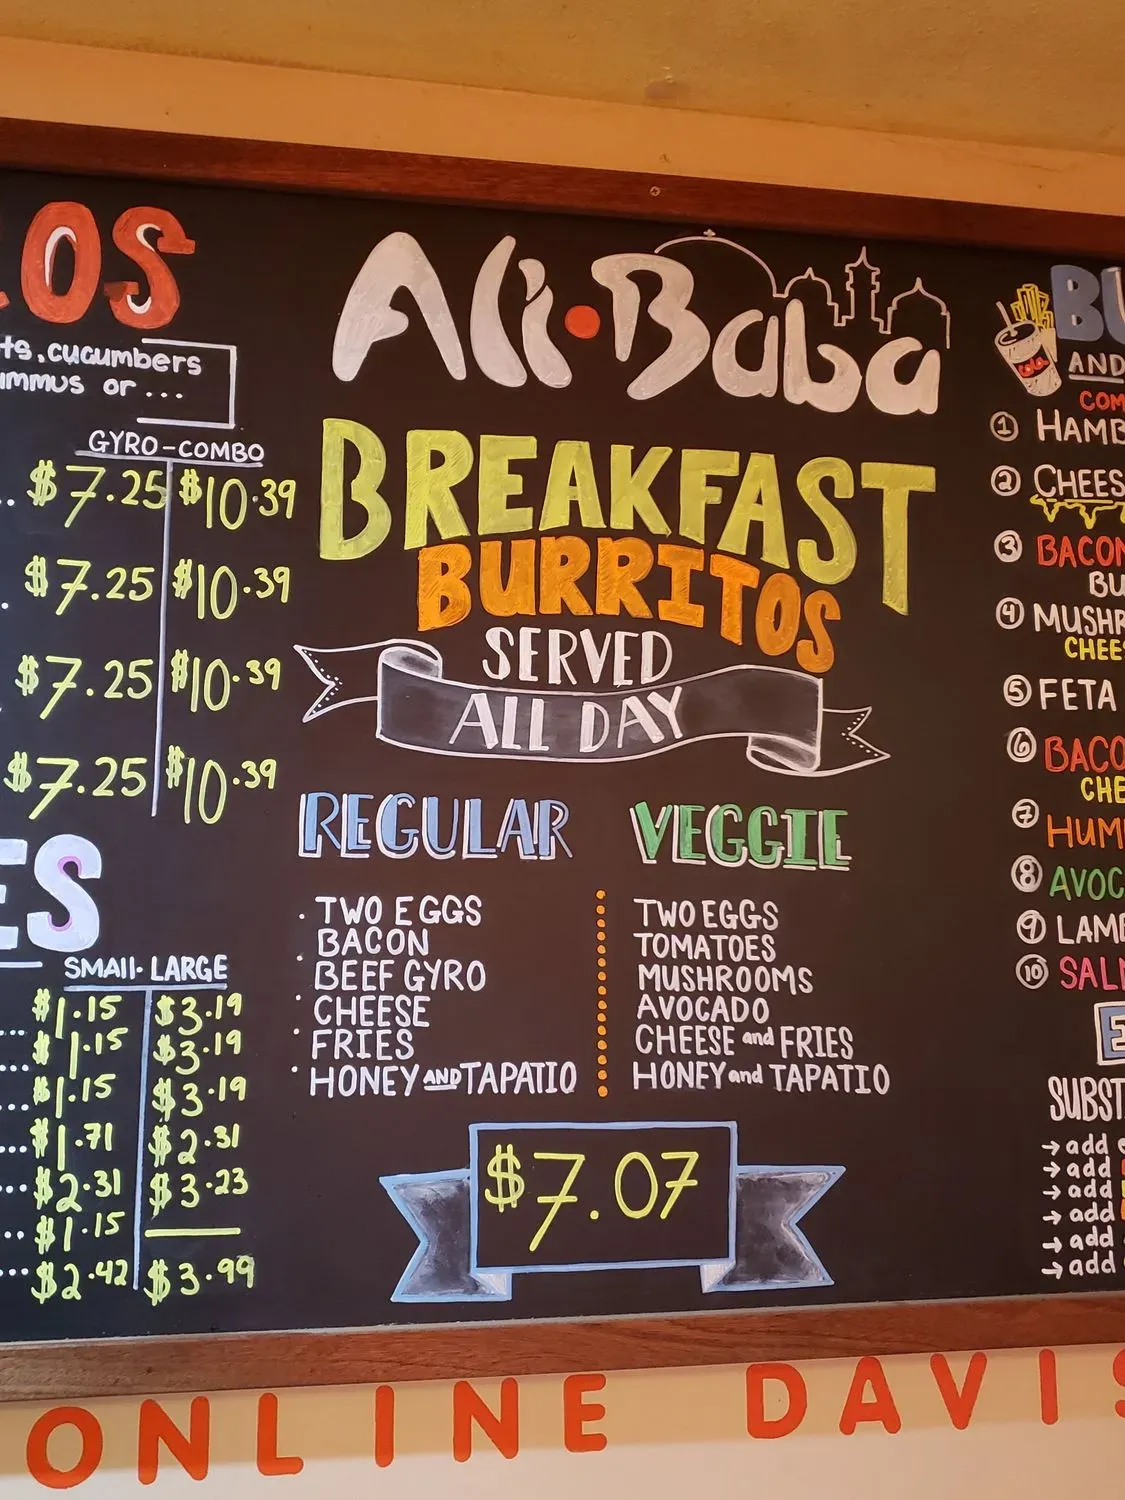 OS
ts. cucumbers
mmus or ...
GYRO-COMBO
$7.25 $10.39
$7.25 $10.39
$7.25 $10.39
$7.25 $10.39
ES
SMALL· LARGE
$1.15 $3.19
$1.15 $3.19
$1.15 $3.19
$1.71 $2.31
$2.31 $3.23
$1.15
$2.42 $3.99
Ali·Baba
BREAKFAST
BURRITOS
SERVED
ALL DAY
REGULAR
· TWO EGGS
· BACON
BEEF GYRO
· CHEESE
· FRIES
· HONEY AND TAPATIO
VEGGIE
TWO EGGS
TOMATOES
MUSHROOMS
AVOCADO
CHEESE and FRIES
HONEY and TAPATIO
$7.07
BU
Cola
AND
COM
1 HAMB
2 CHEES
3 BACON
BU
4 MUSHR
CHEES
5 FETA
6 BACO
CHE
7 HUM
8 AVOC
9 LAMB
10 SAL
E
SUBST
→ add
→ add
→ add
→ add
→ add
→ add
ONLINE DAVIS